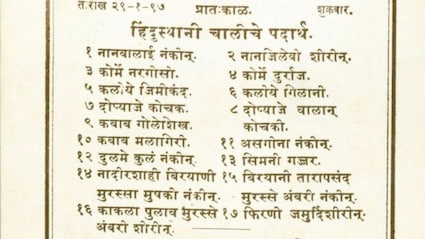 ता.राख २९-१-९७ प्रातःकाळ. शुक्रवार.
हिंदुस्थानी चालीचे पदार्थ.
१ नानबालाई नंकीन्. २ नानजिलेबो शीरीन्.
३ कोर्मे नरगोसी. ४ कोर्मे दुर्राज.
५ कलीये जिमीकंद. ६ कलीये गिलानी.
७ दोप्याजे कोचक. ८ दोप्याजे वालान्
९ कबाब गोलेशेख. कोचकी.
१० कबाब मलागिरी. ११ असगोना नंकीन्.
१२ दुलमे कुलं नंकीन्. १३ सिमनी गज्जर.
१४ नादीरशाही बिरयाणी १५ बिरयानी तारापसंद
मुरस्सा मुषकी नंकीन्. मुरस्से अंबरी नंकीन्.
१६ काकला पुलाव मुरस्से १७ फिरणी जमुर्दिशीरीन्.
अंबरी शीरीन्.